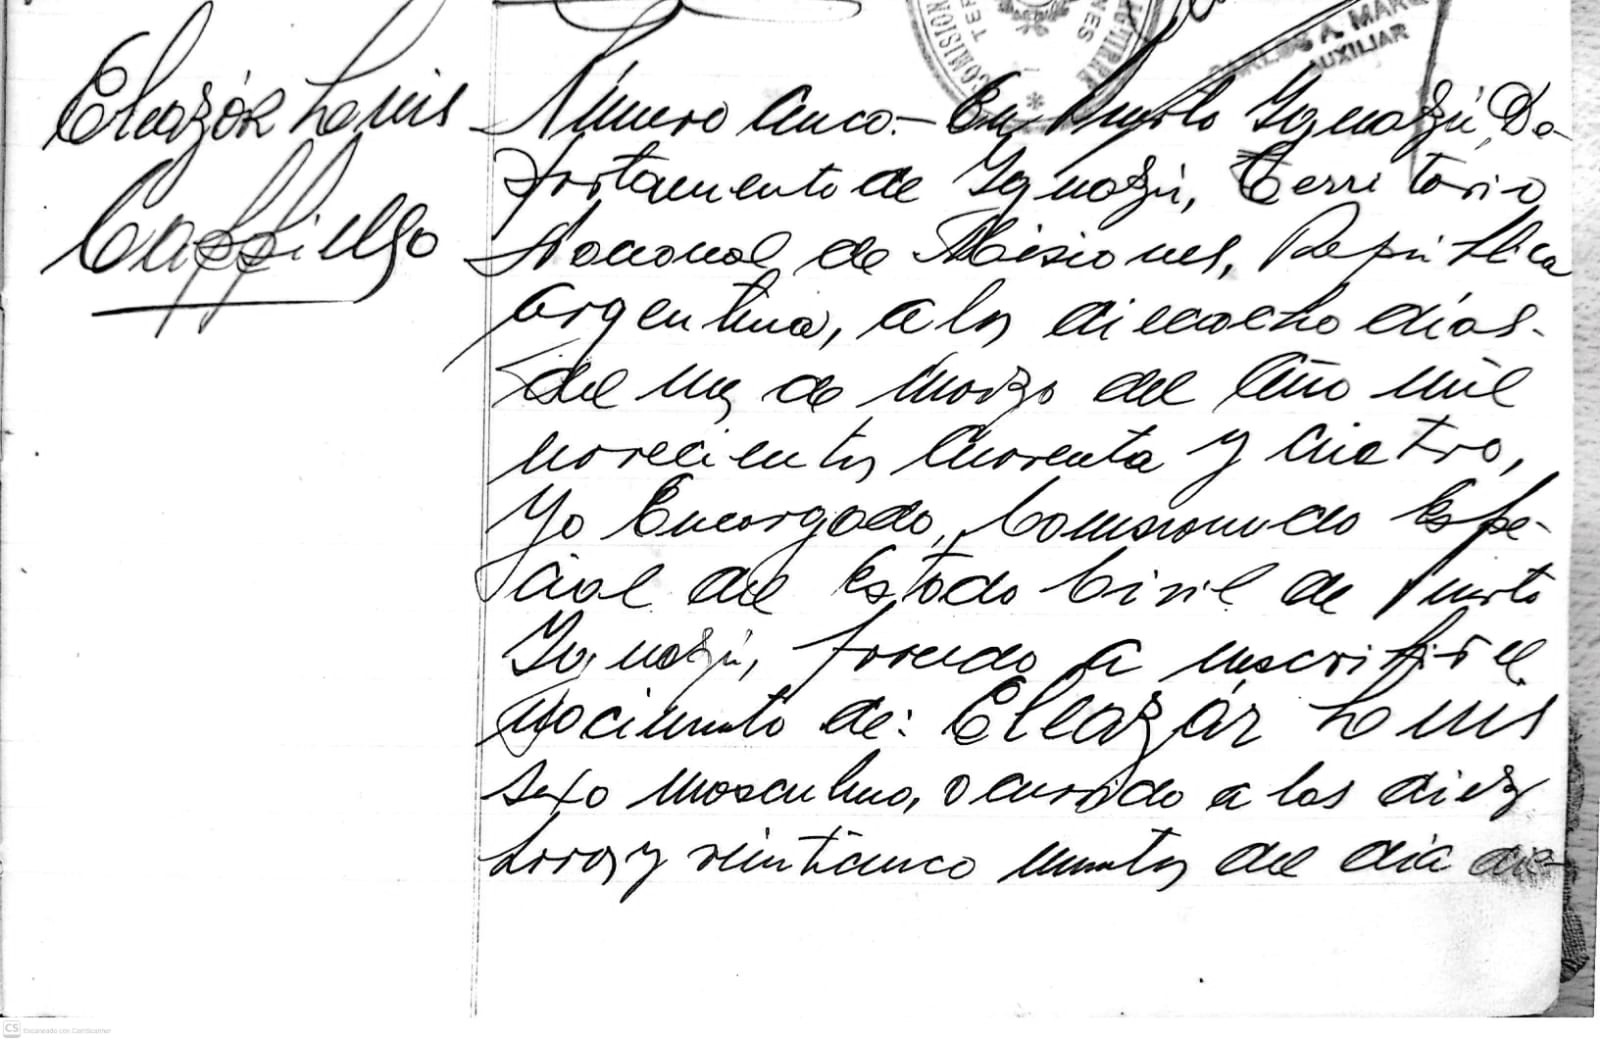 COMISION
TER
ONES
AGUIRRE
CARLOS A. MARQ
AUXILIAR
Eleazár Luis
Cappiello
Número Cinco.- En Puerto Iguazú, De-
partamento de Iguazú, Territorio
Nacional de Misiones, República
Argentina, a los dieciocho días
del mes de Marzo del Año mil
novecientos cuarenta y cuatro,
Yo Encargado, Comisionado Espe-
cial del Estado Civil de Puerto
Iguazú, procedo a inscribir el
Nacimiento de: Eleazár Luis
sexo masculino, ocurrido a las diez
horas y veinticinco minutos del día die-
CS Escaneado con CamScanner